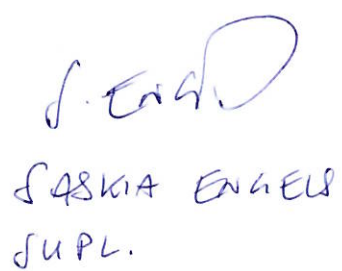 S. Engel
SASKIA ENGELS
SUPL.